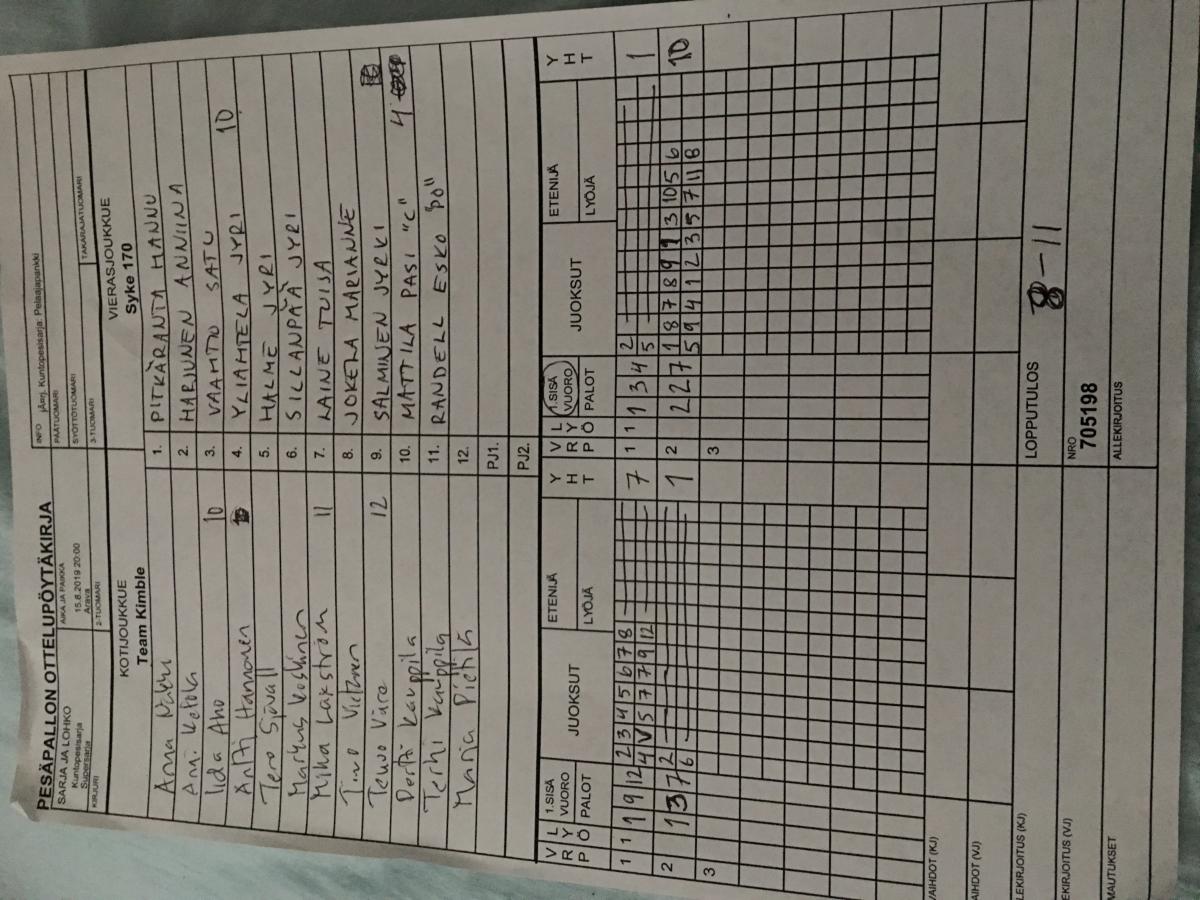 PESÄPALLON OTTELUPÖYTÄKIRJA
SARJA JA LOHKO
Kuntopesisarja
Supersarja
AIKA JA PAIKKA
15.8.2019 20:00
Arava
INFO
Kuntopesisarja: Pelaajapankki
PÄÄTUOMARI
SYÖTTÖTUOMARI
TAKARAJATUOMARI
KIRJURI
2-TUOMARI
3-TUOMARI
KOTIJOUKKUE
Team Kimble
VIERASJOUKKUE
Syke 170
Anna 1. PITKÄRANTA HANNU
Anni 2. HARJUNEN ANNIINA
Iida Aho 10 3. SATU
Antti Hannonen 4. YLIAMTELA JYRI 10
Tero Sjövall 5. HALME JYRI
Markus Koskinen 6. SILLANPÄÄ JYRI
Mika Lakström 11 7. LAINE TUIJA
Timo 8. JOKELA MARIANNE
Teuvo 12 9. SALMINEN JYRKI
Pertti Kauppila 10. MATTILA PASI "C" 4
Terhi Kauppila 11. RANDELL ESKO
Maria Pietilä 12.
PJ1.
PJ2.
V L 1.SISÄ JUOKSUT ETENIJÄ Y V L 1.SISÄ JUOKSUT ETENIJÄ Y
R Y VUORO H R Y VUORO H
P Ö PALOT LYÖJÄ T P Ö PALOT LYÖJÄ T
1 1 1 9 12 2 3 4 5 6 7 8 7 1 1 1 3 4 2 1
4 V 5 7 7 9 12 5
2 1 3 7 2 1 2 2 2 7 1 8 7 8 9 1 3 10 5 6 10
6 5 9 4 1 2 3 5 7 11 8
3 3
VAIHDOT (KJ)
AIHDOT (VJ)
LEKIRJOITUS (KJ)
LOPPUTULOS
8-11
EKIRJOITUS (VJ)
NRO
705198
MAUTUKSET
ALLEKIRJOITUS